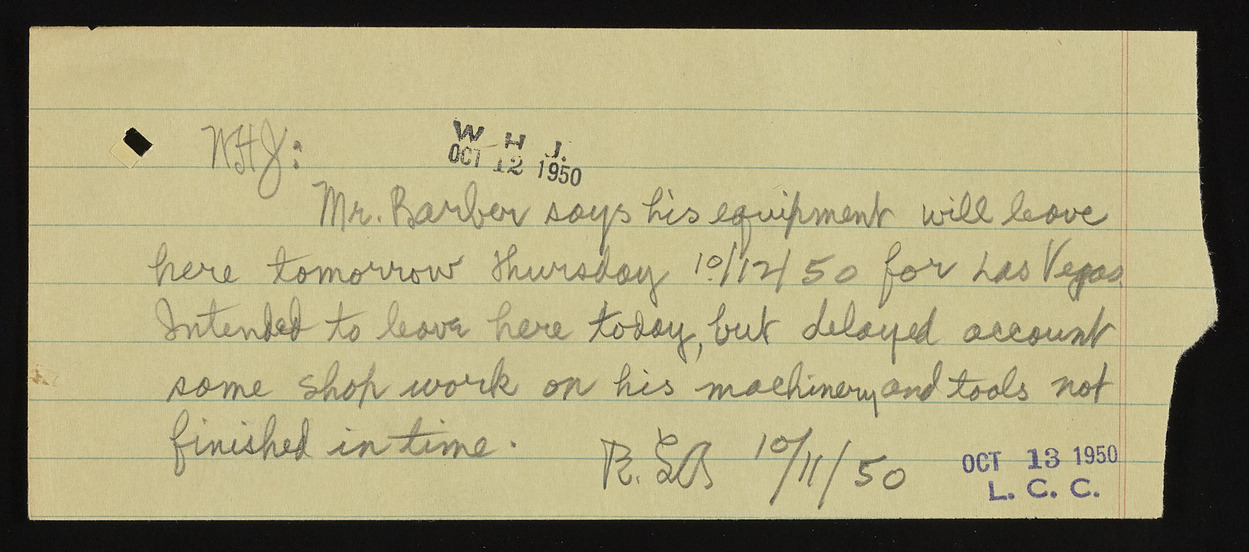 WHJ:
W. H. J.
OCT 12 1950
Mr. Barber says his equipment will leave
here tomorrow Thursday 10/12/50 for Las Vegas.
Intended to leave here today, but delayed account
some shop work on his machinery and tools not
finished in time.
R. LB 10/11/50
OCT 13 1950
L. C. C.